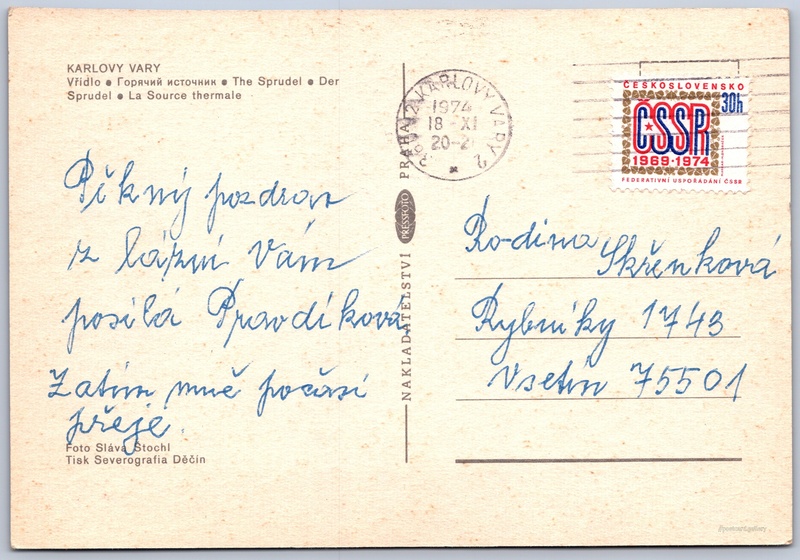 KARLOVY VARY
Vřídlo ● Горячий источник ● The Sprudel ● Der
Sprudel ● La Source thermale
Pěkný pozdrav
z lázní Vám
posílá Pravdíková
Zatím mně počasí
přeje.
Foto Sláva Štochl
Tisk Severografia Děčín
NAKLADATELSTVÍ PRESSFOTO PRAHA
KARLOVY VARY 2
1974
18 -XI
20-21
ČESKOSLOVENSKO
30h
ČSSR
1969·1974
FEDERATIVNÍ USPOŘÁDÁNÍ ČSSR
Rodina Skřenková
Rybníky 1743
Vsetín 75501